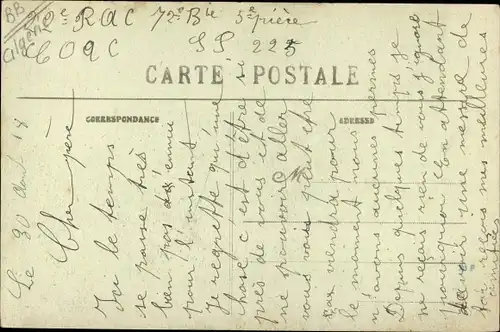 2e RAC 72e Bie 5e pièce
COAC SP 225
CARTE POSTALE
CORRESPONDANCE
ADRESSE
Le 30 Avril 18
Cher père
Ici le temps
se passe très
bien pas d'ennui
pour l'instant
Je regrette qu'une
chose c'est d'être si
près de vous et de
ne pouvoir aller
vous voir peut être
ça viendra pour
le moment nous
n'avons aucunes permes
Depuis quelques temps je
ne reçois rien de vous j'ignore
pourquoi En attendant
une réponse de
toi reçois mes meilleures
BB
Algérie